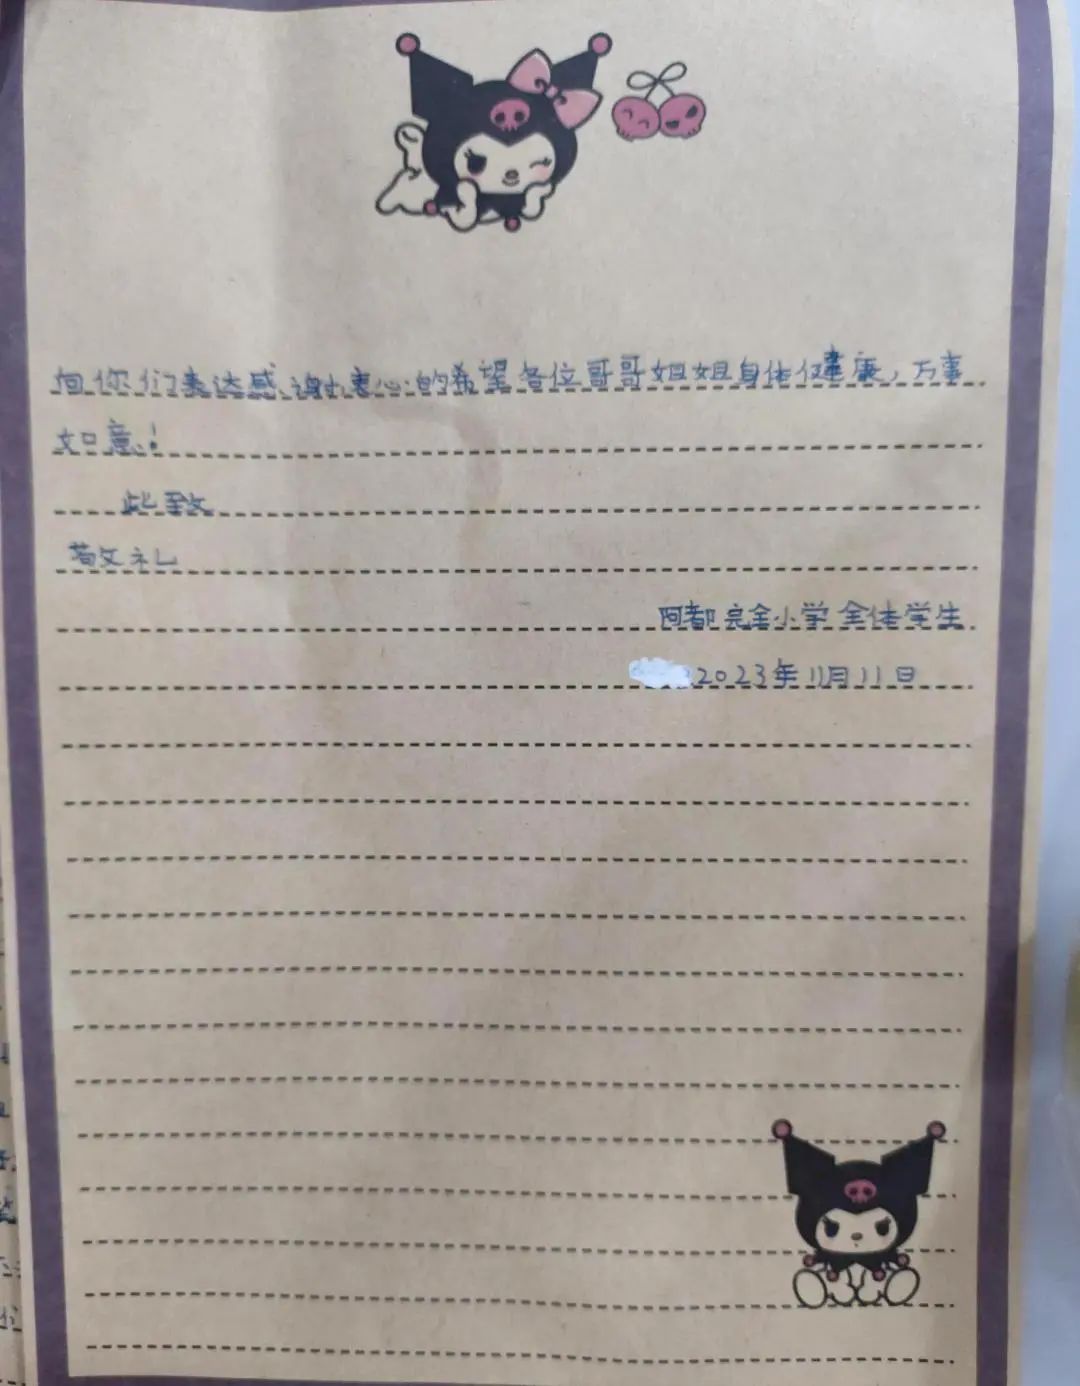 向你们表达感谢!衷心的希望各位哥哥姐姐身体健康，万事
如意！
此致
敬礼
阿都完全小学全体学生
2023年11月11日